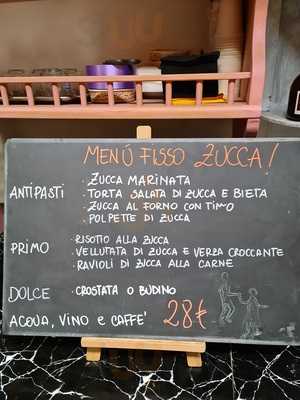 MENÚ FISSO ZUCCA!
ANTIPASTI
· ZUCCA MARINATA
· TORTA SALATA DI ZUCCA E BIETA
· ZUCCA AL FORNO CON TIMO
· POLPETTE DI ZUCCA
PRIMO
· RISOTTO ALLA ZUCCA
· VELLUTATA DI ZUCCA E VERZA CROCCANTE
· RAVIOLI DI ZUCCA ALLA CARNE
DOLCE
· CROSTATA O BUDINO
ACQUA, VINO e CAFFE' 28€